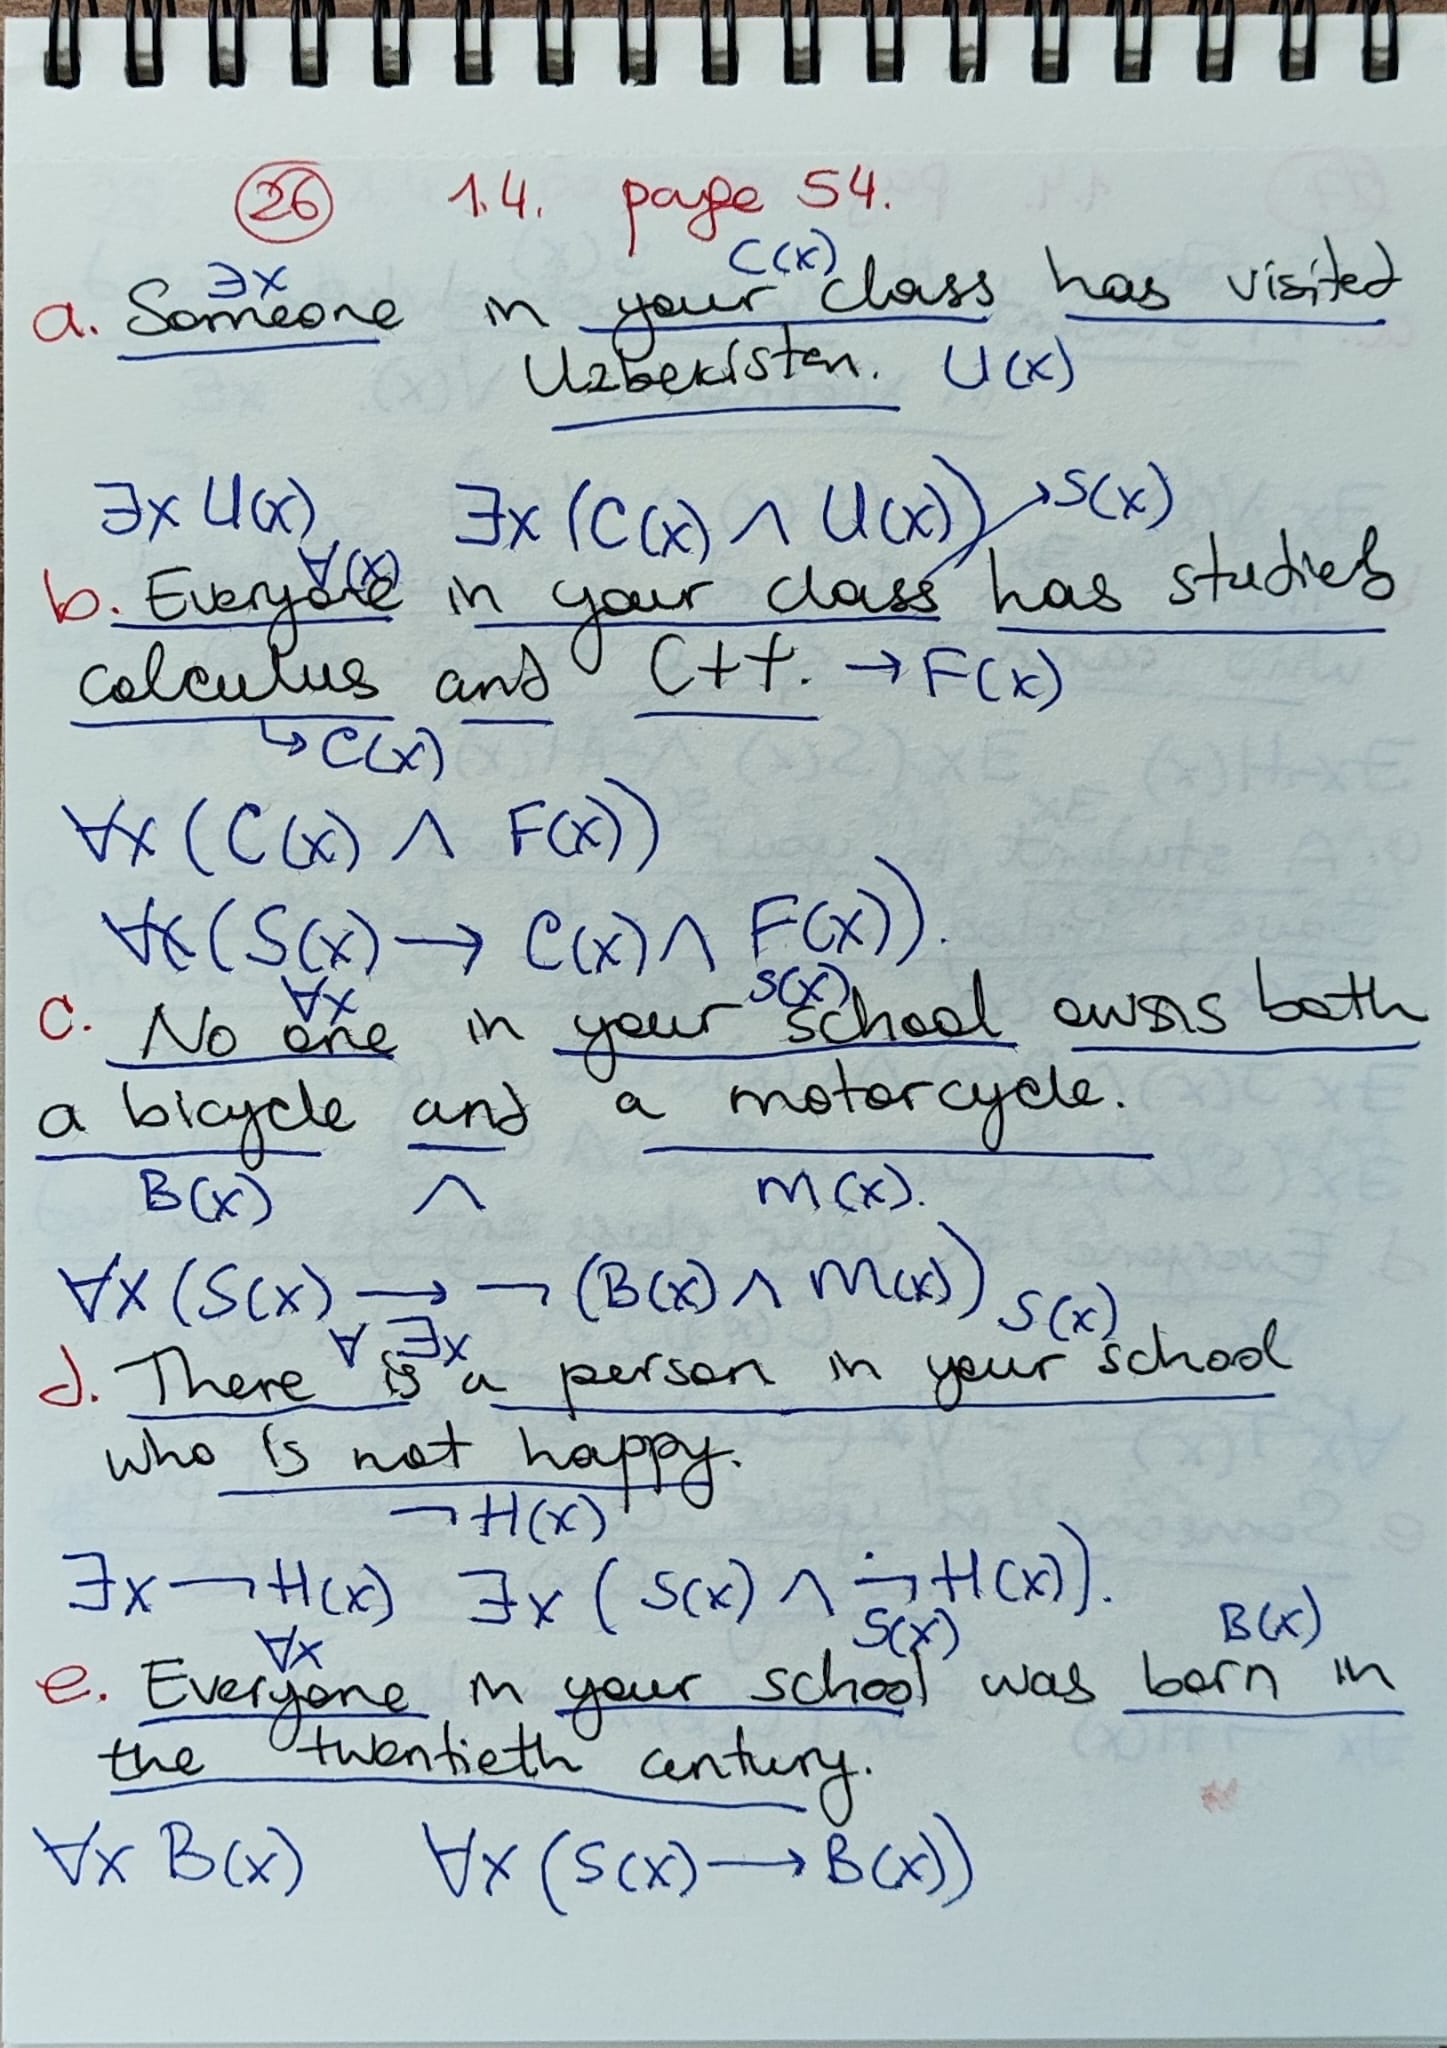 26 1.4. page 54.
∃x C(x)
a. Someone in your class has visited
Uzbekistan. U(x)
∃x U(x) ∃x (C(x) ∧ U(x)) → S(x)
∀(x)
b. Everyone in your class has studied
calculus and C++. → F(x)
↳ C(x)
∀x (C(x) ∧ F(x))
∀x (S(x) → C(x) ∧ F(x)).
∀x S(x)
c. No one in your school owns both
a bicycle and a motorcycle.
B(x) ∧ M(x).
∀x (S(x) → ¬ (B(x) ∧ M(x)) S(x)
∀ ∃x
d. There is a person in your school
who is not happy.
¬H(x)
∃x ¬H(x) ∃x (S(x) ∧ ¬H(x)).
∀x S(x) B(x)
e. Everyone in your school was born in
the twentieth century.
∀x B(x) ∀x (S(x) → B(x))